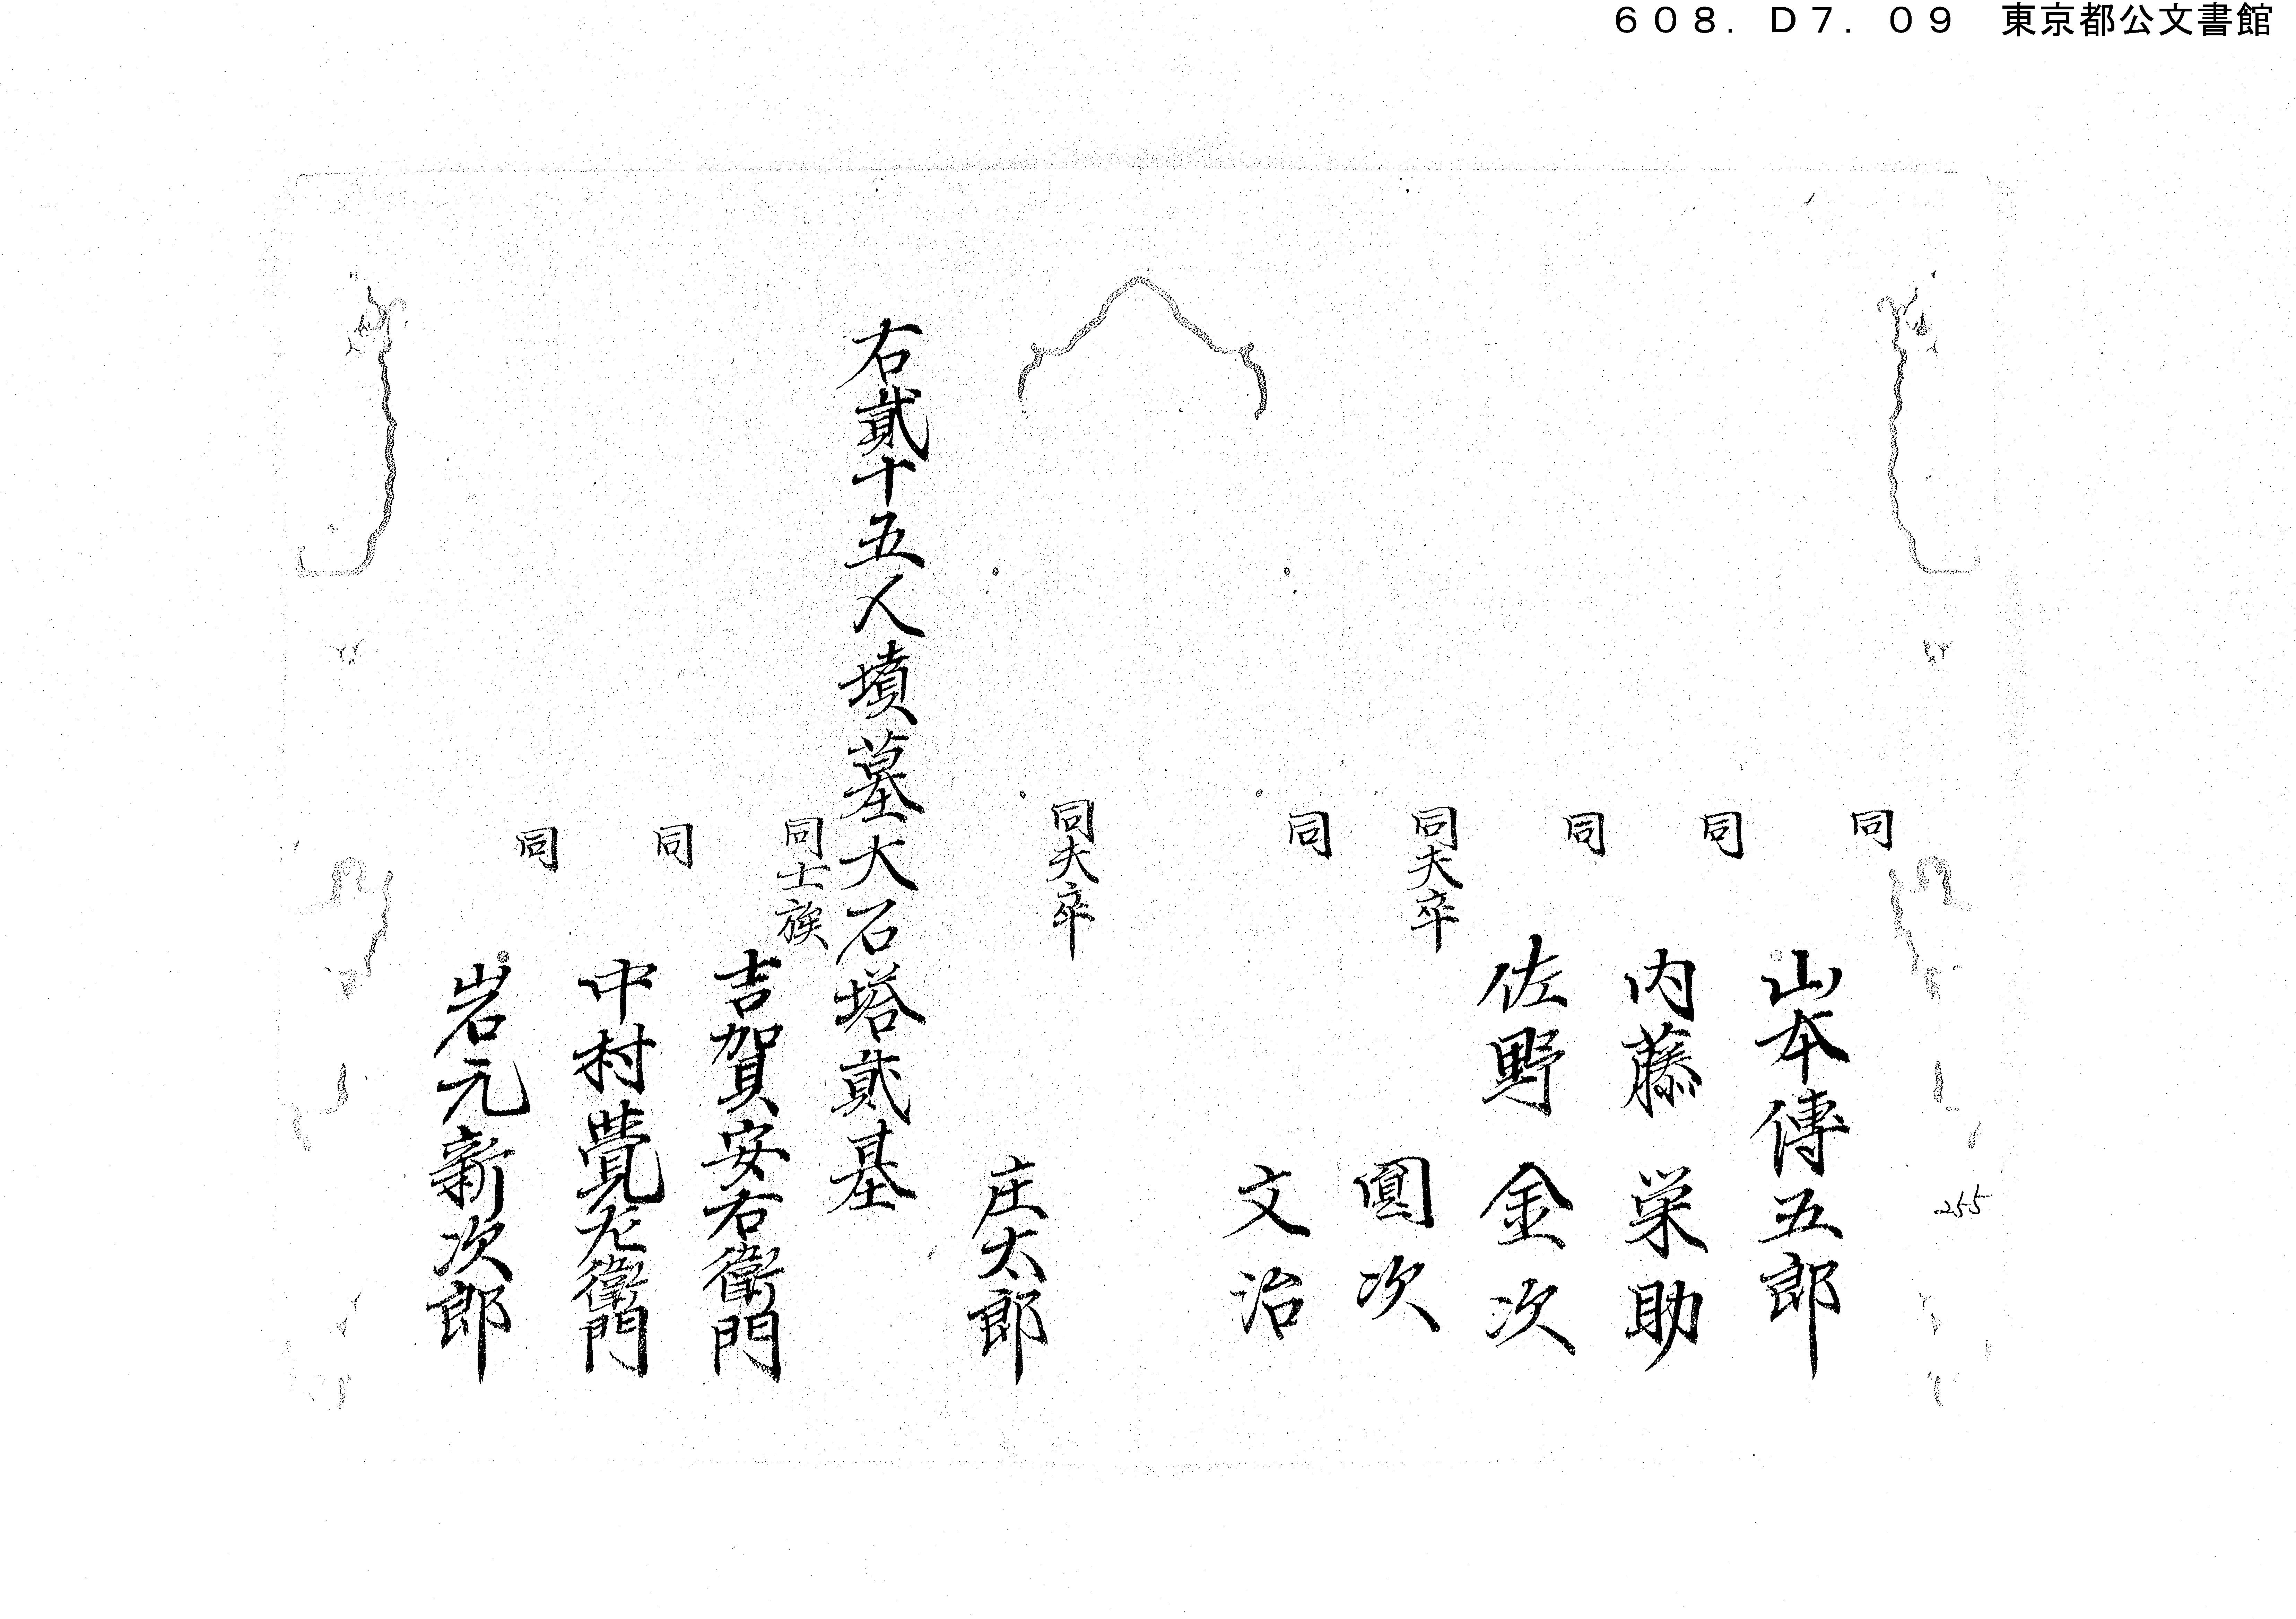 608.D7.09 東京都公文書館
同 山本傳五郎
同 内藤栄助
同 佐野金次
同夫卒 圓次
同 文治
同夫卒 庄太郎
右貳十五人墳墓大石塔貳基
同士族 吉賀安右衛門
同 中村覺左衛門
同 岩元新次郎
255